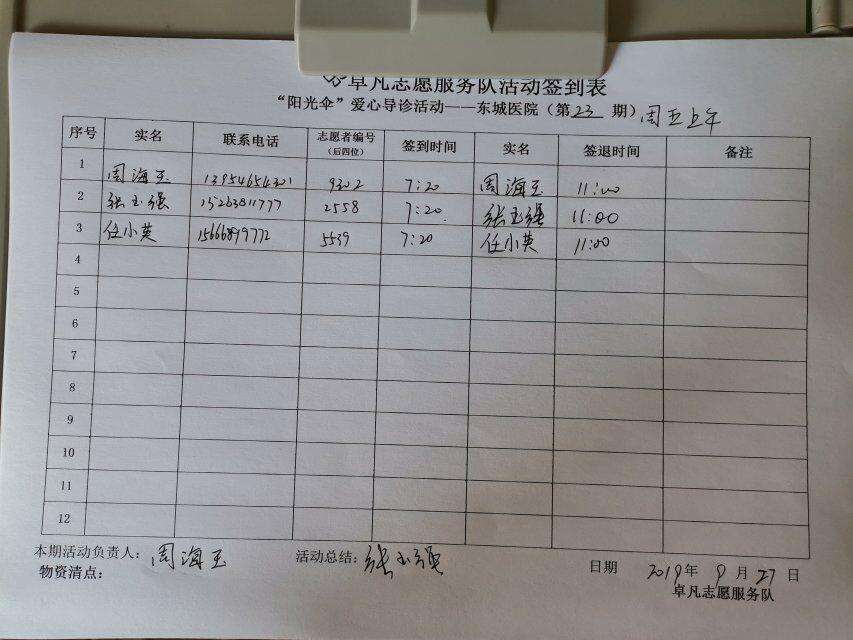 卓凡志愿服务队活动签到表
“阳光伞”爱心导诊活动——东城医院（第23期）周五上午
序号 实名 联系电话 志愿者编号（后四位） 签到时间 实名 签退时间 备注
1 周海玉 13954654301 9302 7:20 周海玉 11:00
2 张玉强 15263811777 2558 7:20 张玉强 11:00
3 任小英 15666899772 5539 7:20 任小英 11:00
4
5
6
7
8
9
10
11
12
本期活动负责人：周海玉 活动总结：张玉强 日期 2019年9月27日
物资清点： 卓凡志愿服务队